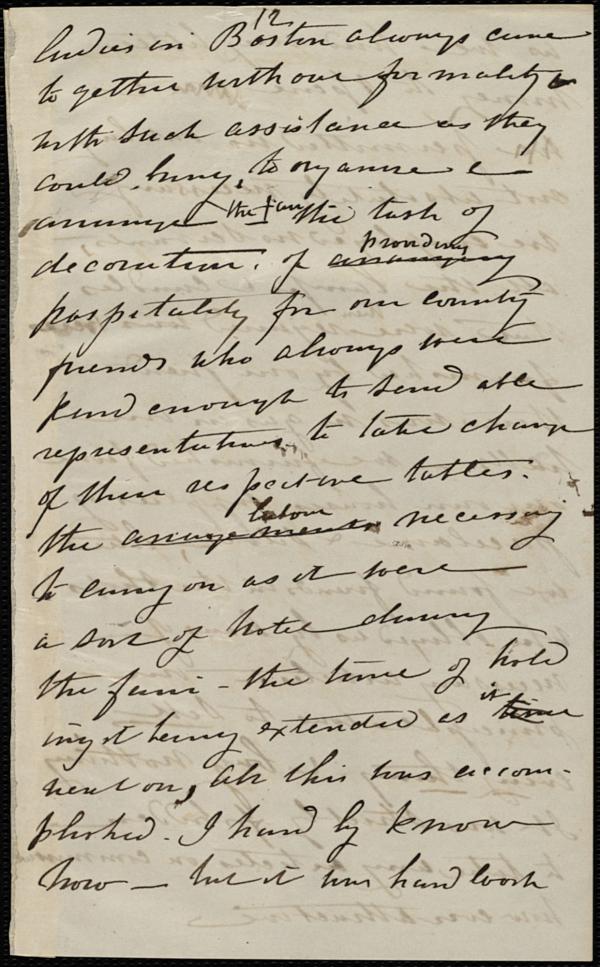 12
ladies in Boston always came
together without formality
with such assistance as they
could bring, to organise &
arrange the fair the task of
decoration. of arranging providing
hospitality for our country
friends who always were
kind enough to send able
representatives, to take charge
of their respective tables.
the arrangements labour necessary
to carry on as it were
a sort of hotel during
the fair - the time of hold
ing it being extended as time it
went on, All this was accom-
plished. I hardly know
how — but it was hard work